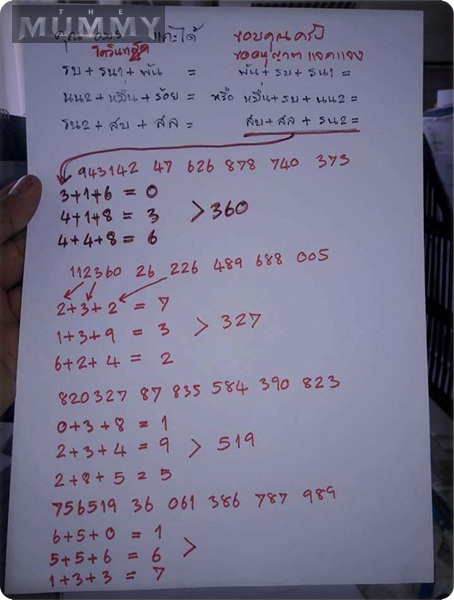 THE
MUMMY
คุณ และได้ ขอบคุณครับ
ขออนุญาต แจกแจง
รบ + รน1 + พัน = พัน + รบ + รน1 =
นน2 + หมื่น + ร้อย = หรือ หมื่น + รบ + นน2 =
รน2 + สบ + สล = สบ + สล + รน2 =
943142 47 626 878 740 373
3+1+6 = 0
4+1+8 = 3 > 360
4+4+8 = 6
112360 26 226 489 688 005
2+3+2 = 7
1+3+9 = 3 > 327
6+2+4 = 2
820327 87 835 584 390 823
0+3+8 = 1
2+3+4 = 9 > 519
2+8+5 = 5
756519 36 061 386 787 989
6+5+0 = 1
5+5+6 = 6 >
1+3+3 = 7